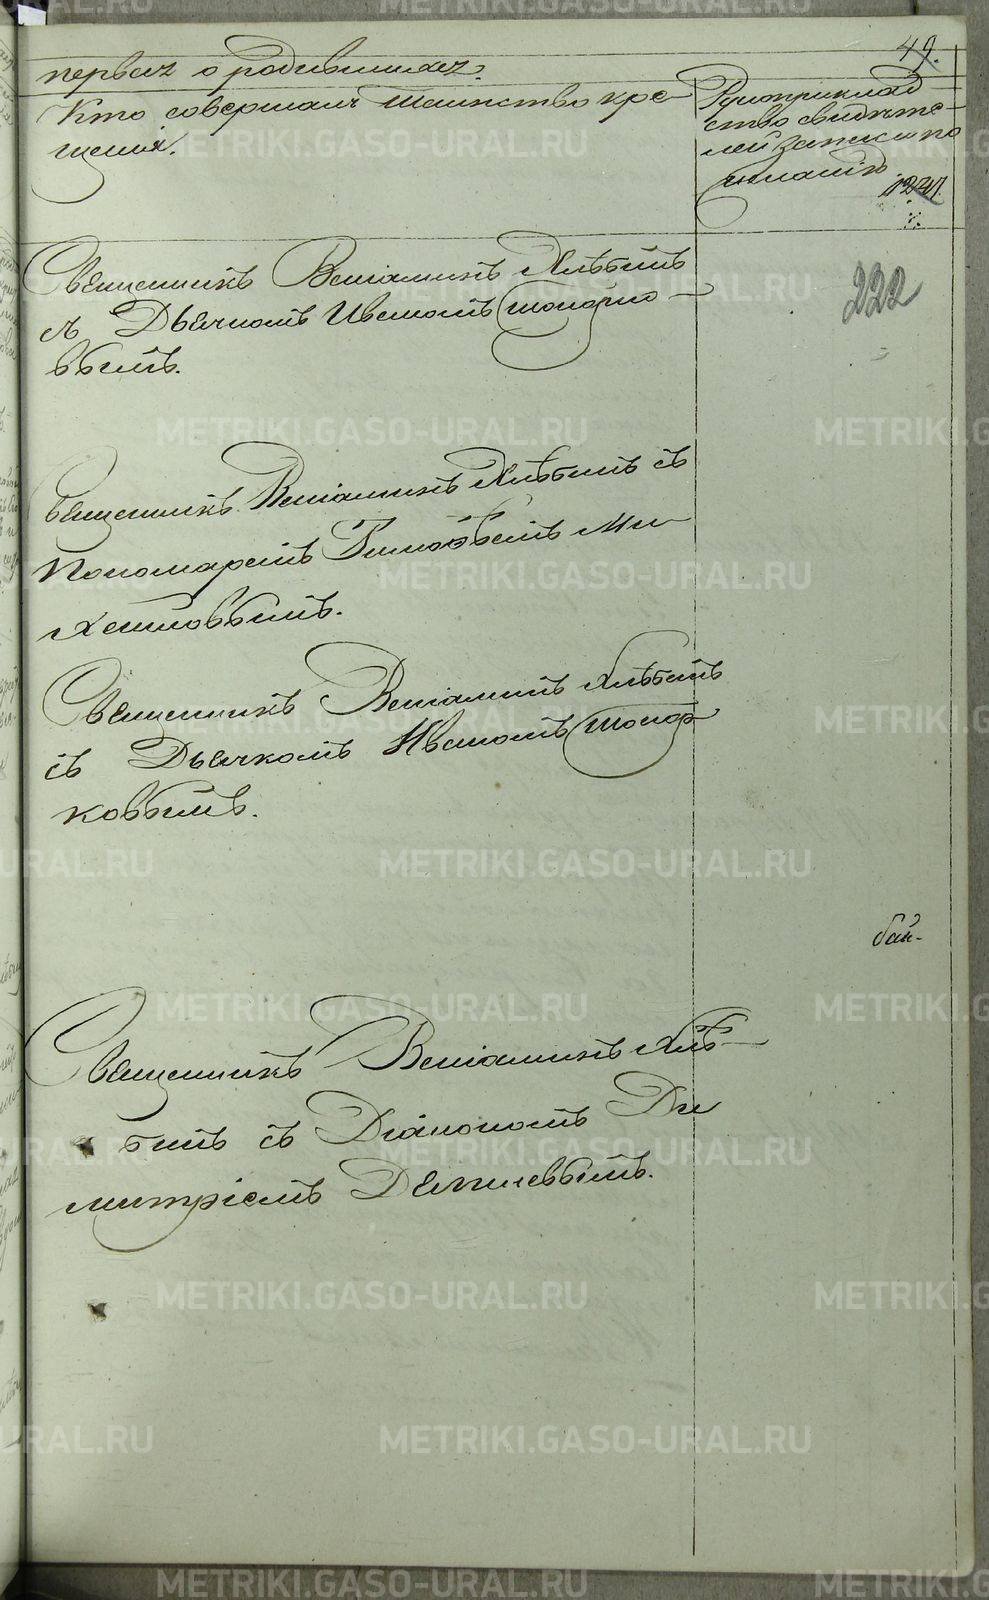 49.
первая о родившихся.
Кто совершалъ таинство кре-
щенія.
Рукоприклад
ство свидѣте-
лей записи по
желанію
222
Священникъ Веніаминъ Хлѣбинъ
съ Дьячкомъ Иваномъ Топорко-
вымъ.
Священникъ Веніаминъ Хлѣбинъ съ
Пономаремъ Тимоѳеемъ Ми
хайловымъ.
Священникъ Веніаминъ Хлѣбинъ
съ Дьячкомъ Иваномъ Топор
ковымъ.
Священникъ Веніаминъ Хлѣ-
бинъ съ Діакономъ Ди
митріемъ
METRIKI.GASO-URAL.RU